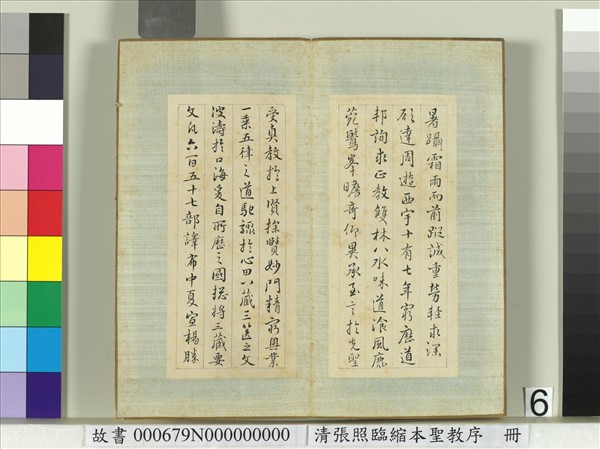 暑躡霜雨而前蹤誠重勞輕求深
願達周遊西宇十有七年窮歷道
邦詢求正教雙林八水味道飡風鹿
菀鷲峯瞻奇仰異承至言於先聖
受真教於上賢探賾妙門精窮奧業
一乘五律之道馳驟於心田八藏三篋之文
波濤於口海爰自所歷之國總將三藏要
文凡六百五十七部譯布中夏宣楊勝
6
故書 000679N000000000 清張照臨縮本聖教序 冊